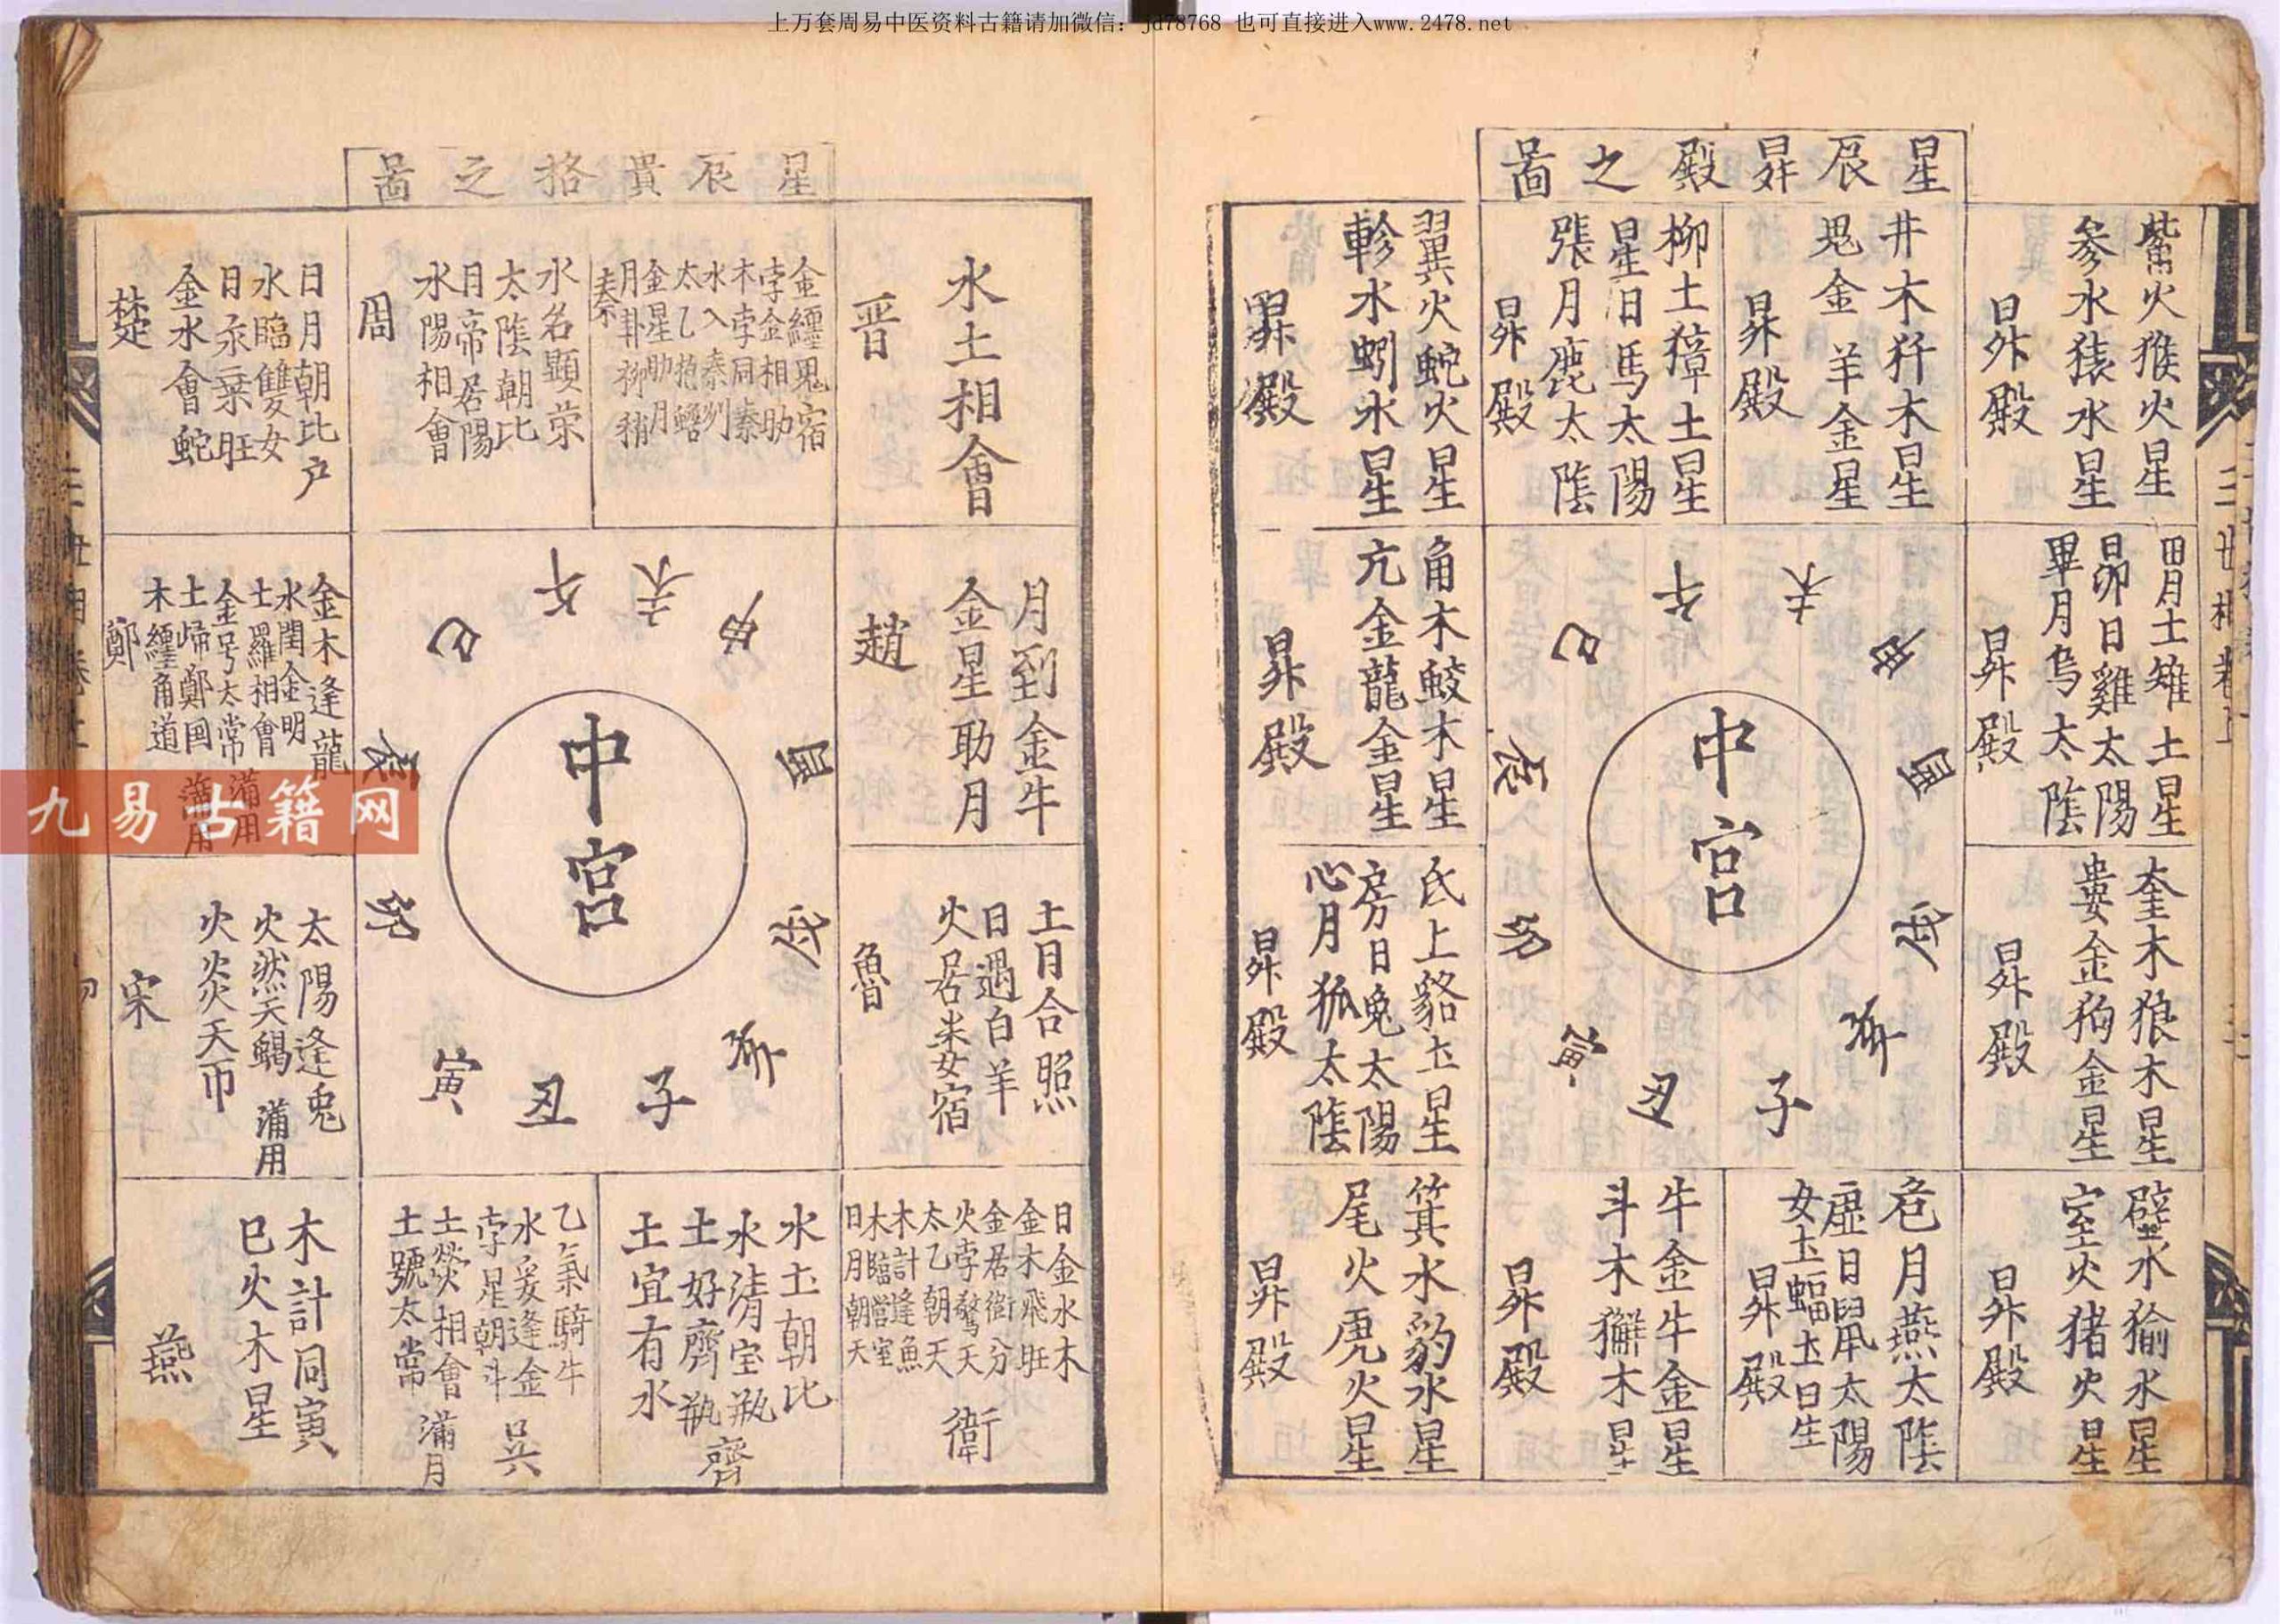 上万套周易中医资料古籍请加微信：jd78768 也可直接进入www.2478.net
星辰昇殿之啚
觜火猴火星
参水猿水星
昇殿
井木犴木星
鬼金羊金星
昇殿
柳土獐土星
星日馬太陽
張月鹿太隂
昇殿
翼火蛇火星
軫水蚓水星
昇殿
胃土雉土星
昴日雞太陽
畢月烏太隂
昇殿
奎木狼木星
婁金狗金星
昇殿
角木鮫木星
亢金龍金星
昇殿
氐土貉土星
房日兔太陽
心月狐太隂
昇殿
壁水㺄水星
室火猪火星
昇殿
危月燕太隂
虚日鼠太陽
女土蝠土日生
昇殿
牛金牛金星
斗木獬木星
昇殿
箕水豹水星
尾火虎火星
昇殿
中宮
子
丑
寅
卯
辰
巳
午
未
申
酉
戌
亥
三世相卷上
星辰貴格之啚
水土相會
晋
金纏鬼宿
孛金相助
木孛同秦
水入秦州
太乙抱蟾
金星助月
月卦柳稍
秦
水名顯荣
太隂朝比
月帝居陽
水陽相會
周
日月朝比户
水臨雙女
日乘旺
金水會蛇
楚
月到金牛
金星助月
趙
土月合照
日遇白羊
火居娄宿
魯
金木逢龍
水閏金明
土羅相會
金号太常
土歸鄭国
木纏角道
鄭
滿用
滿用
太陽逢兎
火然天蝎
火炎天
滿用
宋
日金水木
金木飛旺
金居衛分
火孛驚天
太乙朝天
木計逢魚
木臨營室
日月朝天
衛
水土朝比
水清宝瓶
土好齊瓶
土宜有水
齊
乙氣騎牛
水爰逢金
孛星朝斗
土熒相會
土號太常
吴
滿月
木計同寅
巳火木星
燕
中宮
子
丑
寅
卯
辰
巳
午
未
申
酉
戌
亥
九易古籍网